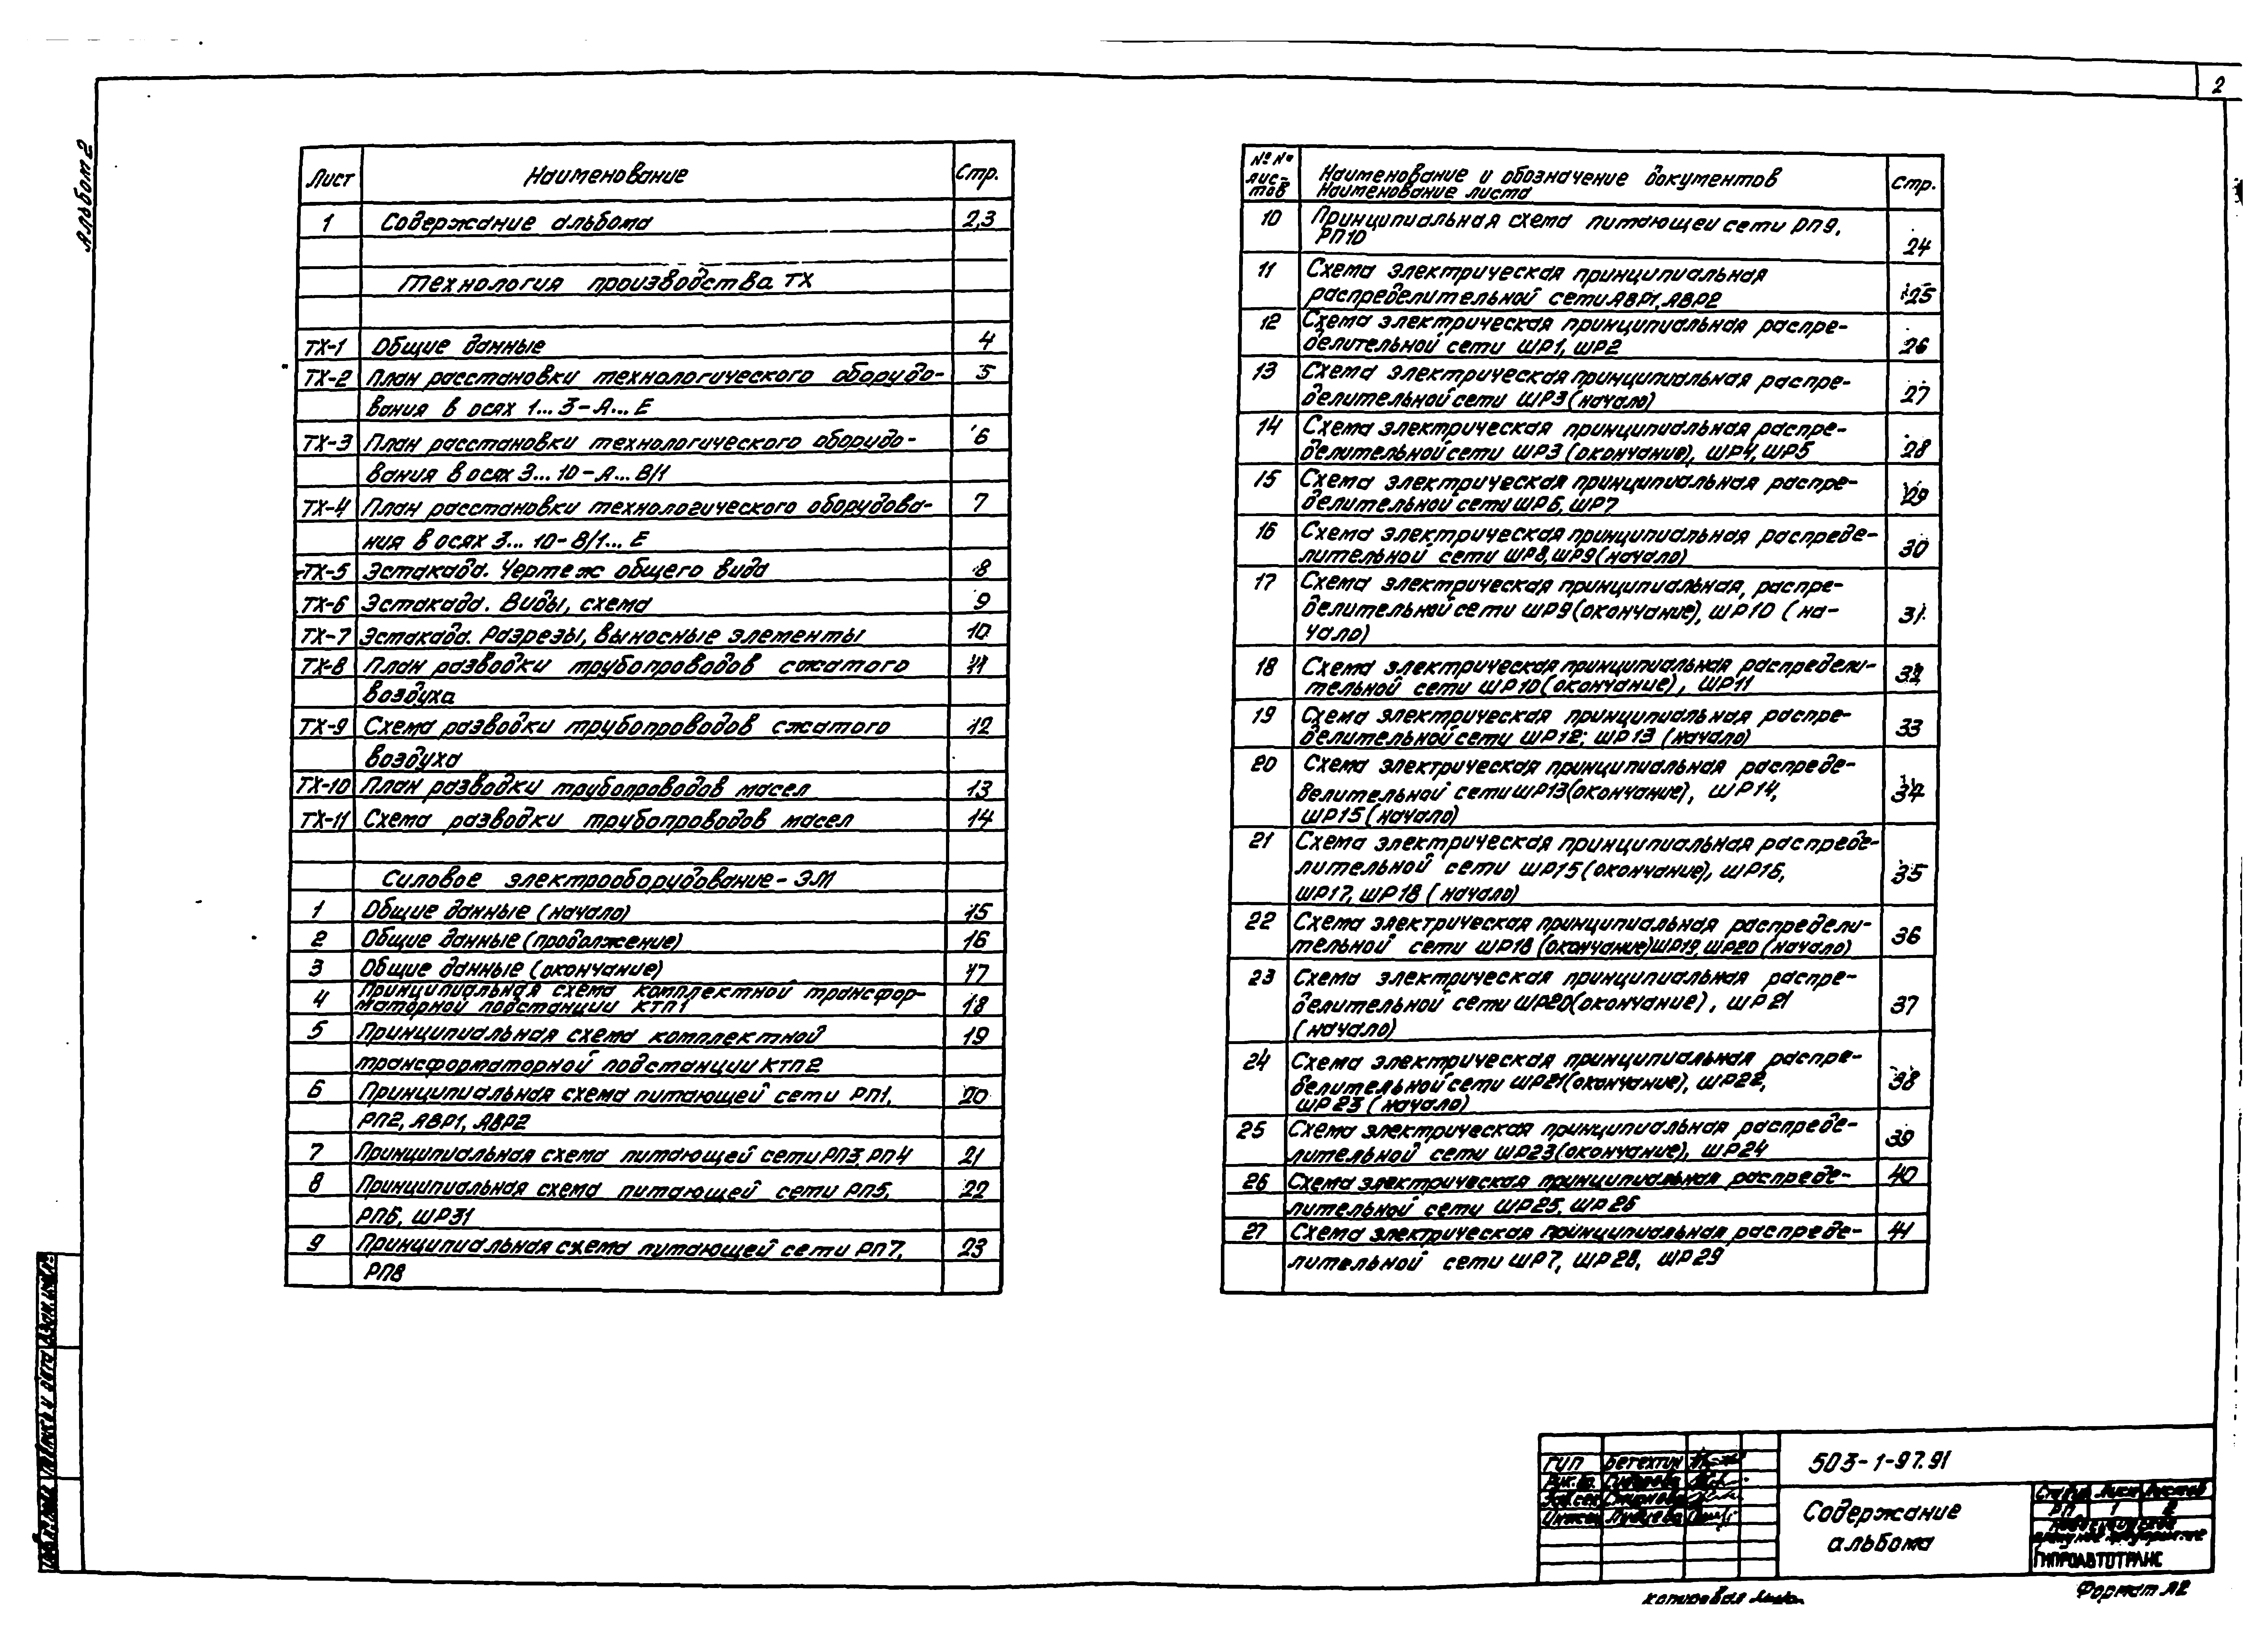 2
Альбом 2
Лист Наименование Стр.
1 Содержание альбома 2,3
Технология производства ТХ
ТХ-1 Общие данные 4
ТХ-2 План расстановки технологического оборудо- 5
вания в осях 1... 3-А... Е
ТХ-3 План расстановки технологического оборудо- 6
вания в осях 3... 10-А... В/1
ТХ-4 План расстановки технологического оборудова- 7
ния в осях 3... 10-В/1... Е
ТХ-5 Эстакада. Чертеж общего вида 8
ТХ-6 Эстакада. Виды, схема 9
ТХ-7 Эстакада. Разрезы, выносные элементы 10
ТХ-8 План разводки трубопроводов сжатого 11
воздуха
ТХ-9 Схема разводки трубопроводов сжатого 12
воздуха
ТХ-10 План разводки трубопроводов масел 13
ТХ-11 Схема разводки трубопроводов масел 14
Силовое электрооборудование-ЭМ
1 Общие данные (начало) 15
2 Общие данные (продолжение) 16
3 Общие данные (окончание) 17
4 Принципиальная схема комплектной трансфор- 18
маторной подстанции КТП1
5 Принципиальная схема комплектной 19
трансформаторной подстанции КТП2
6 Принципиальная схема питающей сети РП1, 20
РП2, АВР1, АВР2
7 Принципиальная схема питающей сети РП3, РП4 21
8 Принципиальная схема питающей сети РП5, 22
РП6, ШР31
9 Принципиальная схема питающей сети РП7, 23
РП8
№№ лис- тов Наименование и обозначение документов Стр.
Наименование листа
10 Принципиальная схема питающей сети РП9,
РП10 24
11 Схема электрическая принципиальная
распределительной сети АВР1, АВР2 25
12 Схема электрическая принципиальная распре-
делительной сети ШР1, ШР2 26
13 Схема электрическая принципиальная распре-
делительной сети ШР3 (начало) 27
14 Схема электрическая принципиальная распре-
делительной сети ШР3 (окончание), ШР4, ШР5 28
15 Схема электрическая принципиальная распре-
делительной сети ШР6, ШР7 29
16 Схема электрическая принципиальная распреде-
лительной сети ШР8, ШР9 (начало) 30
17 Схема электрическая принципиальная, распре-
делительной сети ШР9 (окончание), ШР10 (на- 31
чало)
18 Схема электрическая принципиальная распредели-
тельной сети ШР10 (окончание), ШР11 32
19 Схема электрическая принципиальная распре-
делительной сети ШР12; ШР13 (начало) 33
20 Схема электрическая принципиальная распреде-
делительной сети ШР13 (окончание), ШР14, 34
ШР15 (начало)
21 Схема электрическая принципиальная распреде-
лительной сети ШР15 (окончание), ШР16, 35
ШР17, ШР18 (начало)
22 Схема электрическая принципиальная распредели-
тельной сети ШР18 (окончание) ШР19, ШР20 (начало) 36
23 Схема электрическая принципиальная распре-
делительной сети ШР20 (окончание), ШР21 37
(начало)
24 Схема электрическая принципиальная распре-
делительной сети ШР21 (окончание), ШР22, 38
ШР23 (начало)
25 Схема электрическая принципиальная распреде-
лительной сети ШР23 (окончание), ШР24 39
26 Схема электрическая принципиальная распреде- 40
лительной сети ШР25, ШР26
27 Схема электрическая принципиальная распреде- 41
лительной сети ШР7, ШР28, ШР29
503-1-97.91
ГИП Бегехтин
Содержание
альбома
Лист Листов
РП 1 2
ГИПРОАВТОТРАНС
Копировал
Формат А2